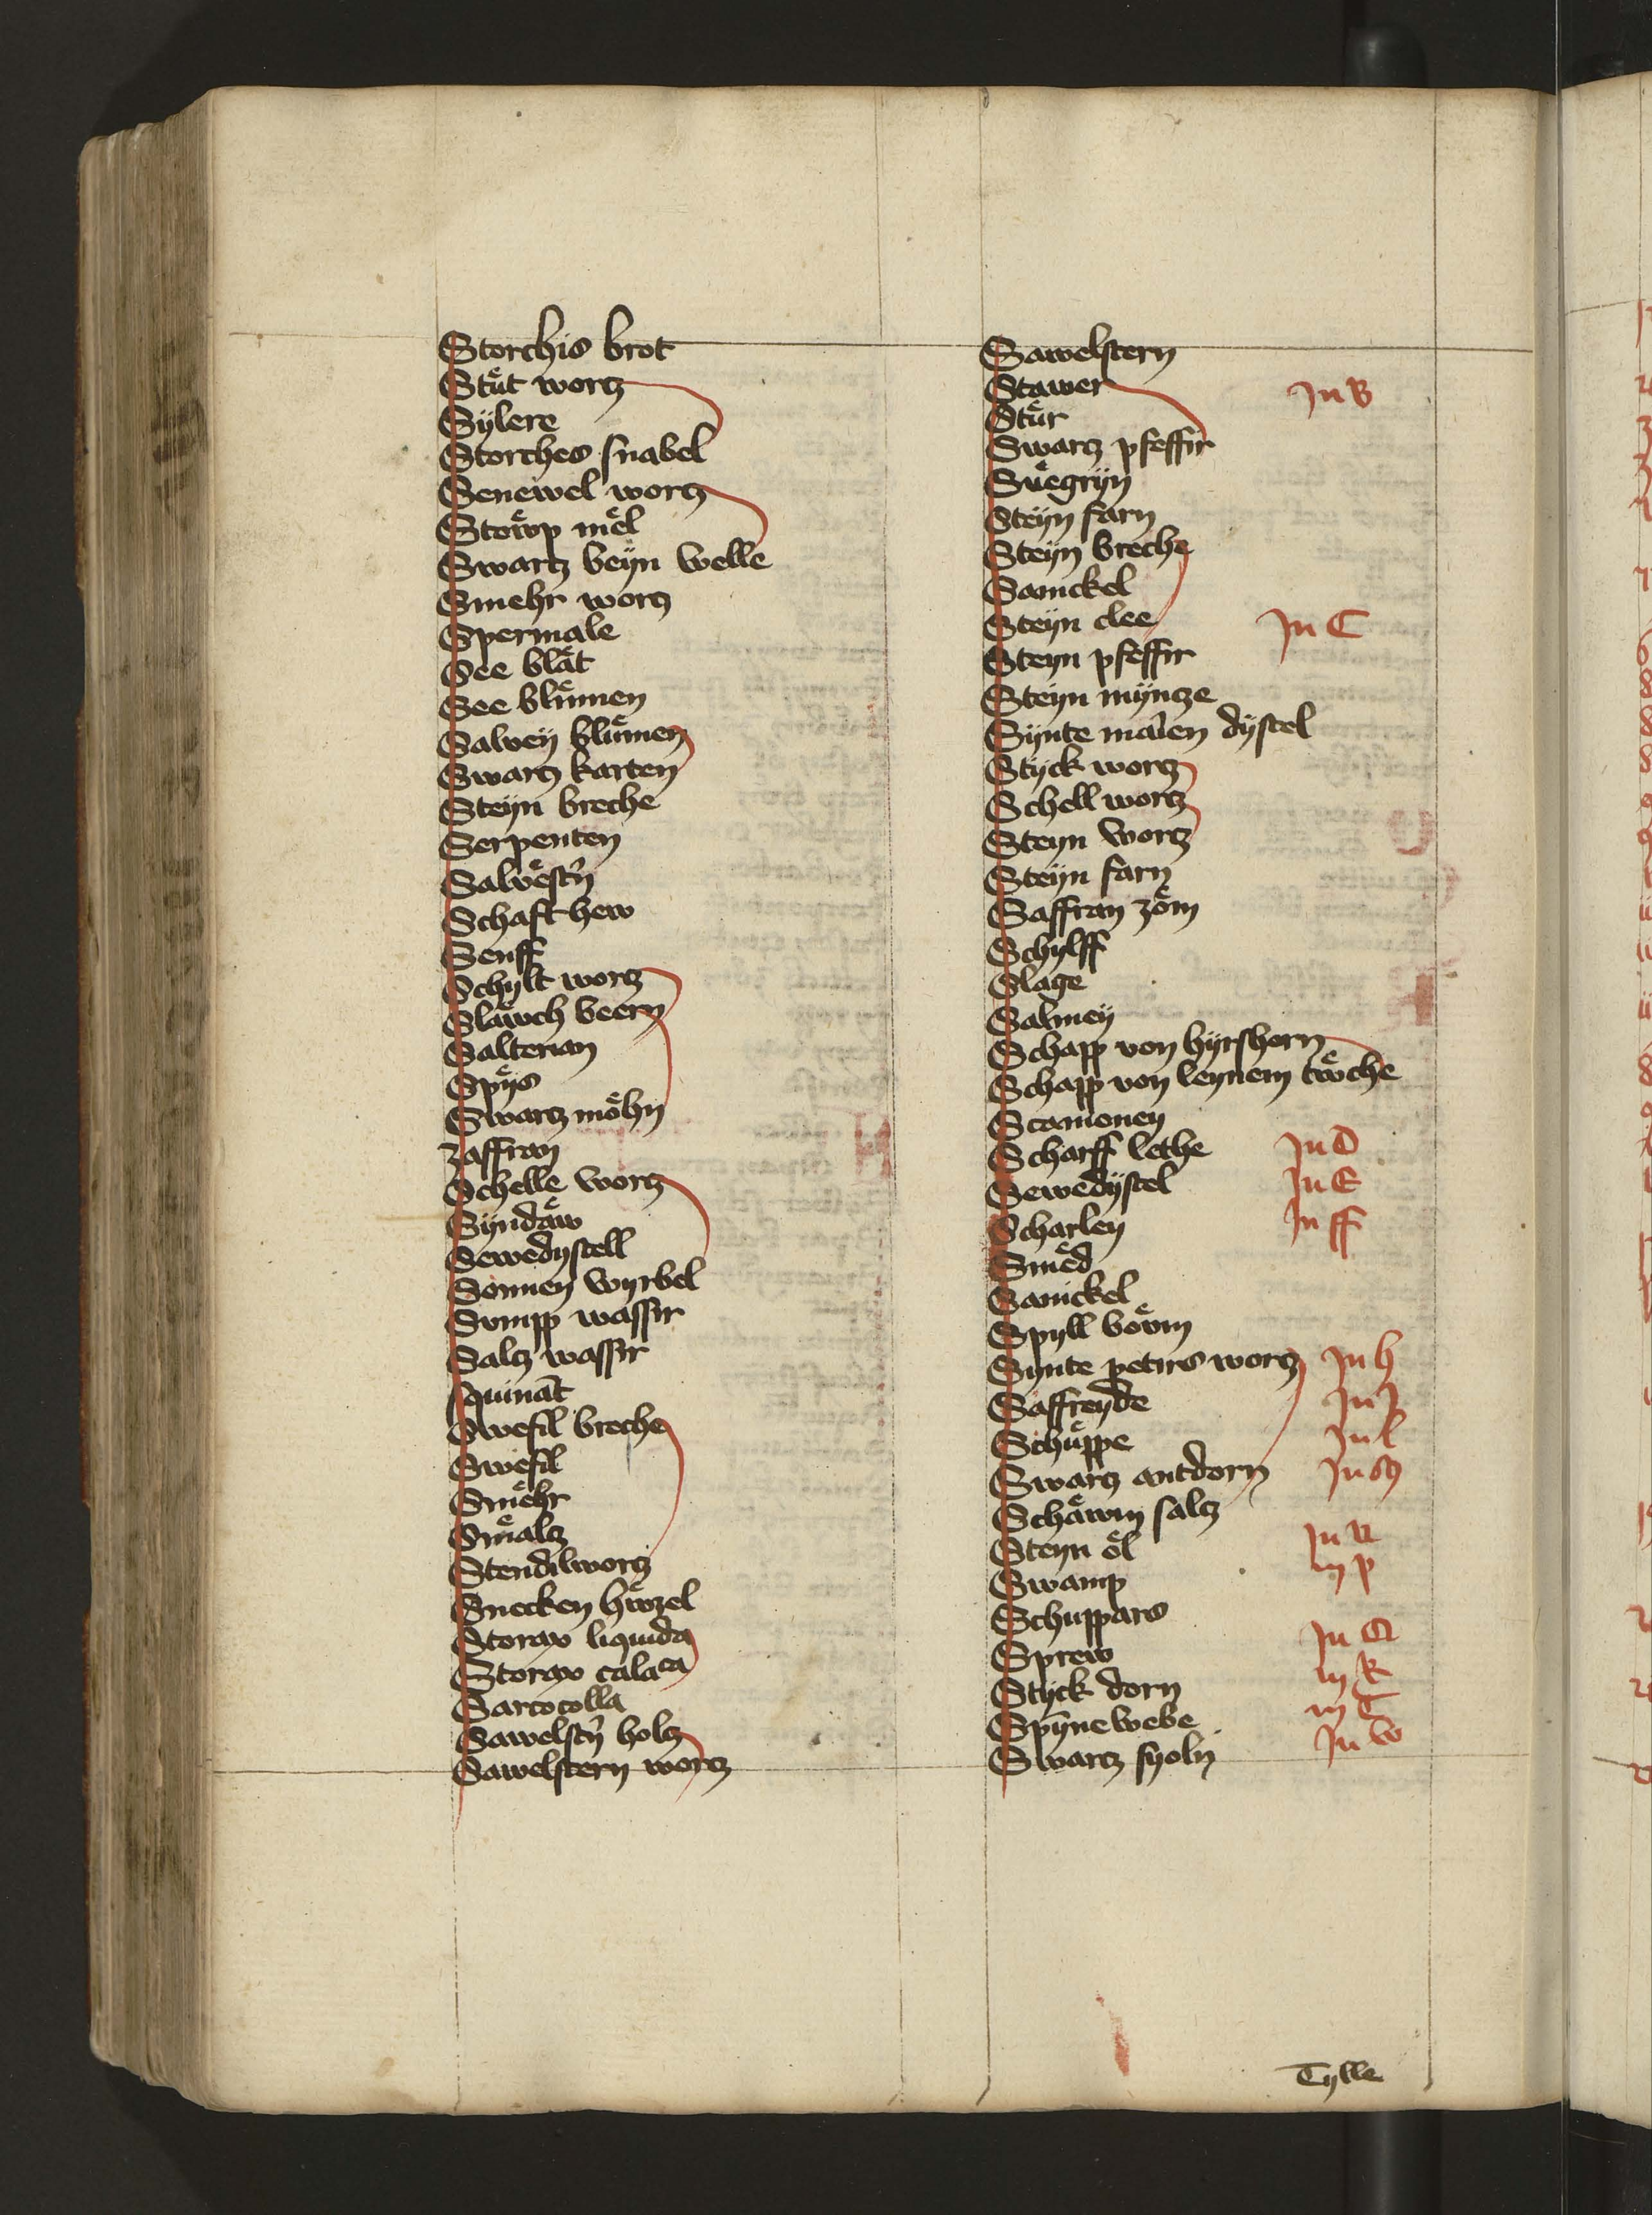 Storchis brot
Stuͤt wortz
Sylere
Storches snabel
Senewel wortz
Stoͤwp meͤl
Swartz beÿn welle
Smehr wortz
Spermale
See blaͤt
See bluͤmen
Salveÿ bluͤmen
Swartz karten
Steÿn breche
Serpenten
Schaft hew
Senff
Schylt wortz
Slaͤwch beern
Salterian
Spÿs
Swartz moͤhn
zaffran
Schelle wortz
Sÿndaͤw
Sewedystell
Sonnen wyrbel
Sumpp wassir
Saltz wassir
squināt
Swefil breche
Swefil
Smeͤhr
Smaͤltz
Stendilwortz
Snecken hwͤzel
Storax liquida
Storax calaca
Sarcocolla
Sawelst'n holtz
Sawelstern wortz
Sawelstern
Stawer In B
Stuͤr
Swartz pfeffir
Sueͤgrÿn
Steÿn farn
Steÿn breche
Sanickel
Steÿn clee In C
Steyn pfeffir
Steÿn mÿntze
Sÿnte maīen dÿstel
Stÿck wortz
Schell wortz
Steyn wortz
Steÿn farn
Saffran zoͤm
Schylff
Slage
Salmeÿ
Schapp von hÿrshorn
Schapp von leynem twͤche
Scamoney
Scharff lethe In D
Sewedÿstel In E
Scharley In ff
Smeͤd
Sanickel
Spyll boͤvm
Synte petirs wortz In h
Saffreyde In J
Schuͤppe In l
Swartz antdorn In M
Schaͤwm saltz
Steyn oͤl In N
Swamp In p
Schuppars
Sprew In Q
Stÿck dorn In R
Spÿnewebe In T
Swartz syoln In W
Tylle